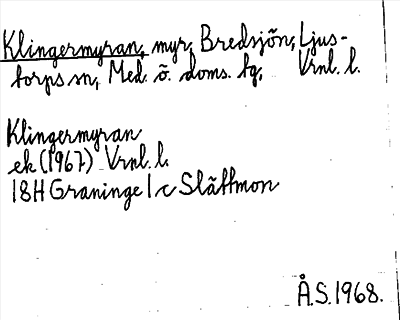 Klingermyran, myr, Bredsjön, Ljus-
torps sn, Med. ö. doms. tg, Vrnl. l.
Klingermyran
ek (1967) Vrnl. l.
18H Graninge 1 c Slättmon
Å.S. 1968.